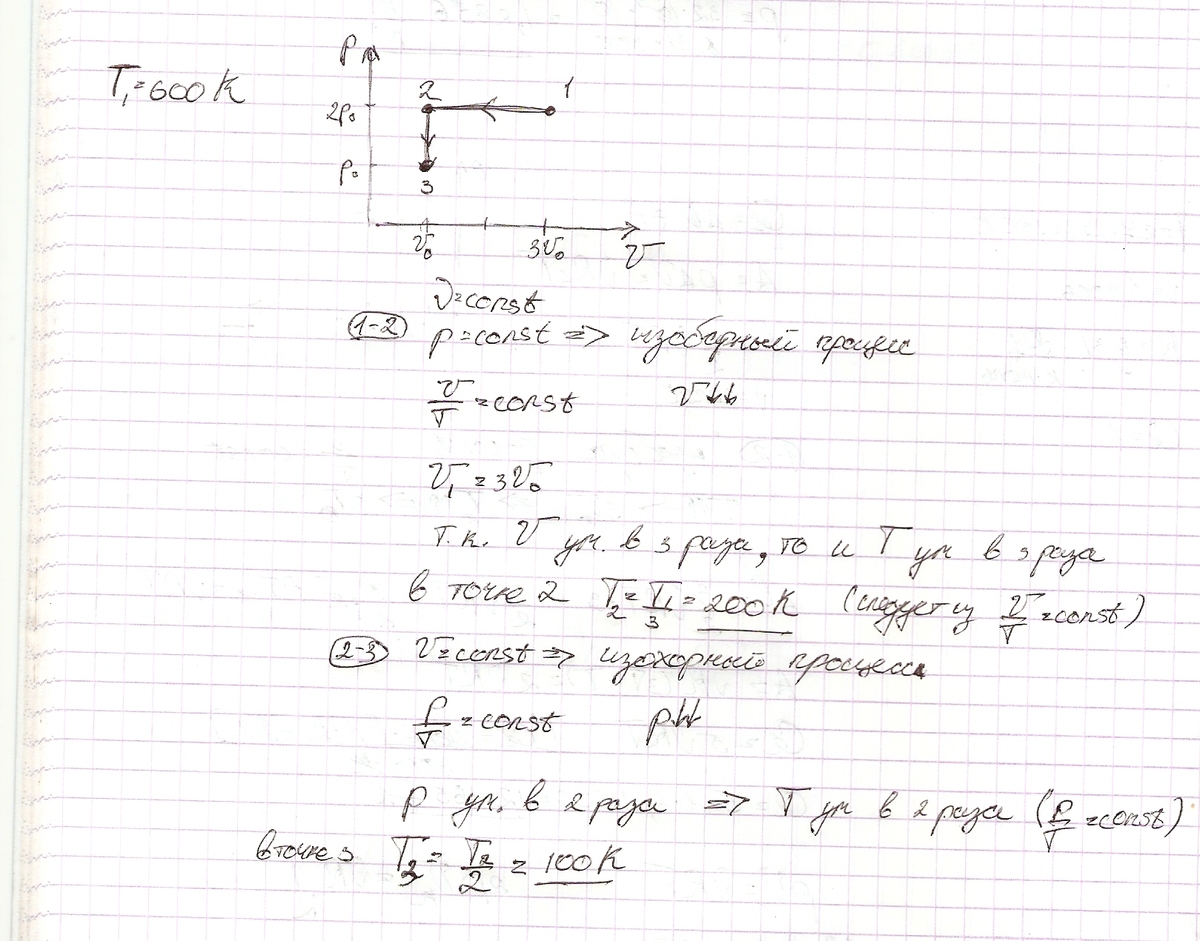 T₁=600K
P
2
1
2P₀
P₀
3
V₀
3V₀
V
ν=const
1-2 p=const => изобарный процесс
V/T=const V↓↓
V₁=3V₀
т.к. V ум. в 3 раза, то и T ум в 3 раза
в точке 2 T₂=T₁/3=200K (следует из V/T=const)
2-3 V=const => изохорный процесс.
P/T=const p↓↓
P ум. в 2 раза => T ум в 2 раза (P/T=const)
в точке 3 T₃=T₂/2=100K